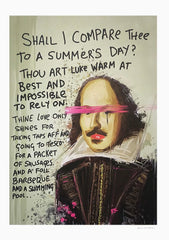 SHALL I COMPARE THEE
TO A SUMMER'S DAY?
THOU ART LUKE WARM AT
BEST AND
IMPOSSIBLE
TO RELY ON.
THINE LOVE ONLY
SHINES FOR
TAKING TAPS AFF AND
GOING TO TESCO
FOR A PACKET
OF SAUSAGES
AND A FOIL
BARBEQUE
AND A SLIMMING
POOL..